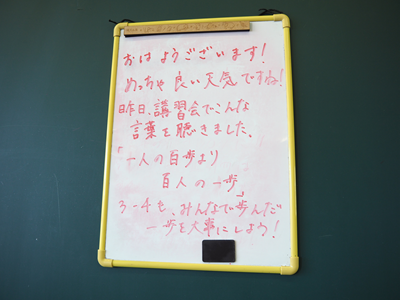 おはようございます!
めっちゃ良い天気ですね!
昨日、講習会でこんな
言葉を聴きました、
「一人の百歩より
百人の一歩」
3-4も、みんなで歩んだ
一歩を大事にしよう!